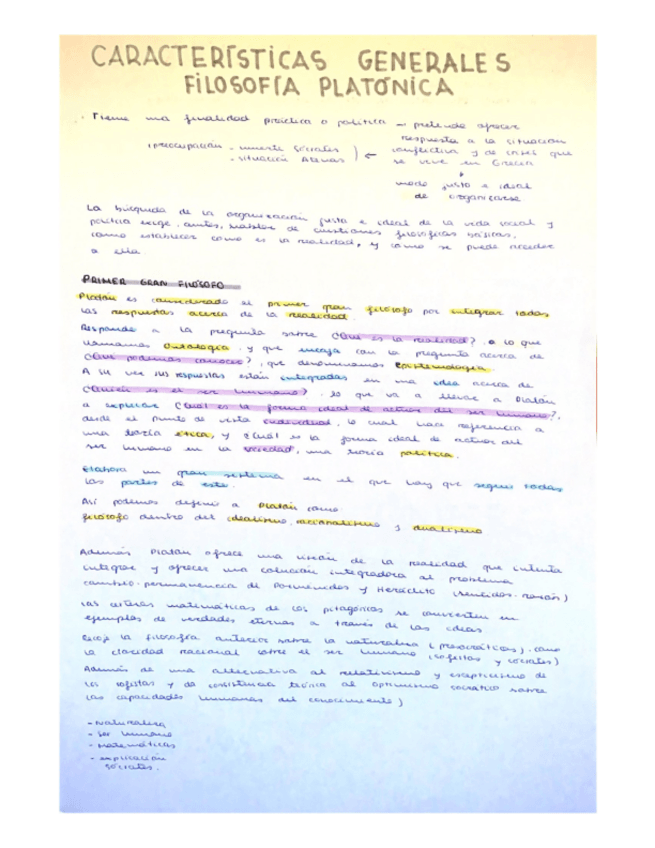 CARACTERÍSTICAS GENERALES
FILOSOFÍA PLATÓNICA
. Tiene una finalidad práctica o política → pretende ofrecer
respuesta a la situación
(preocupación - muerte Sócrates
- situación Atenas ) ←
conflictiva y de crisis que
se vive en Grecia
↓
modo justo e ideal
de organizarse
La búsqueda de la organización justa e ideal de la vida social y
política exige, antes, hablar de cuestiones filosóficas básicas,
como establecer como es la realidad, y como se puede acceder
a ella.
PRIMER GRAN FILÓSOFO
Platón es considerado el primer gran filósofo por integrar todas
las respuestas acerca de la realidad.
Responde a la pregunta sobre ¿Qué es la realidad?, a lo que
llamamos Ontología, y que encaja con la pregunta acerca de
¿Qué podemos conocer?, que denominamos Epistemología.
A su vez sus respuestas están integradas en una idea acerca de
¿Quién es el ser humano?, lo que va a llevar a Platón
a explicar ¿Cuál es la forma ideal de actuar del ser humano?,
desde el punto de vista individual, lo cual hace referencia a
una teoría ética, y ¿Cuál es la forma ideal de actuar del
ser humano en la sociedad, una teoría política.
Elabora un gran sistema en el que hay que seguir todas
las partes de este.
Así podemos definir a Platón como
filósofo dentro del idealismo, racionalismo y dualismo
Además Platón ofrece una visión de la realidad que intenta
integrar y ofrecer una solución integradora al problema
cambio-permanencia de Parménides y Heráclito (sentidos-razón)
Las certezas matemáticas de los pitagóricos se convierten en
ejemplos de verdades eternas a través de las ideas
Recoge la filosofía anterior sobre la naturaleza (presocráticos), como
la claridad racional sobre el ser humano (sofistas y sócrates)
Además de una alternativa al relativismo y escepticismo de
los sofistas y da consistencia teórica al optimismo socrático sobre
las capacidades humanas del conocimiento)
- Naturaleza
- Ser humano
- Matemáticas
- explicación
Sócrates.